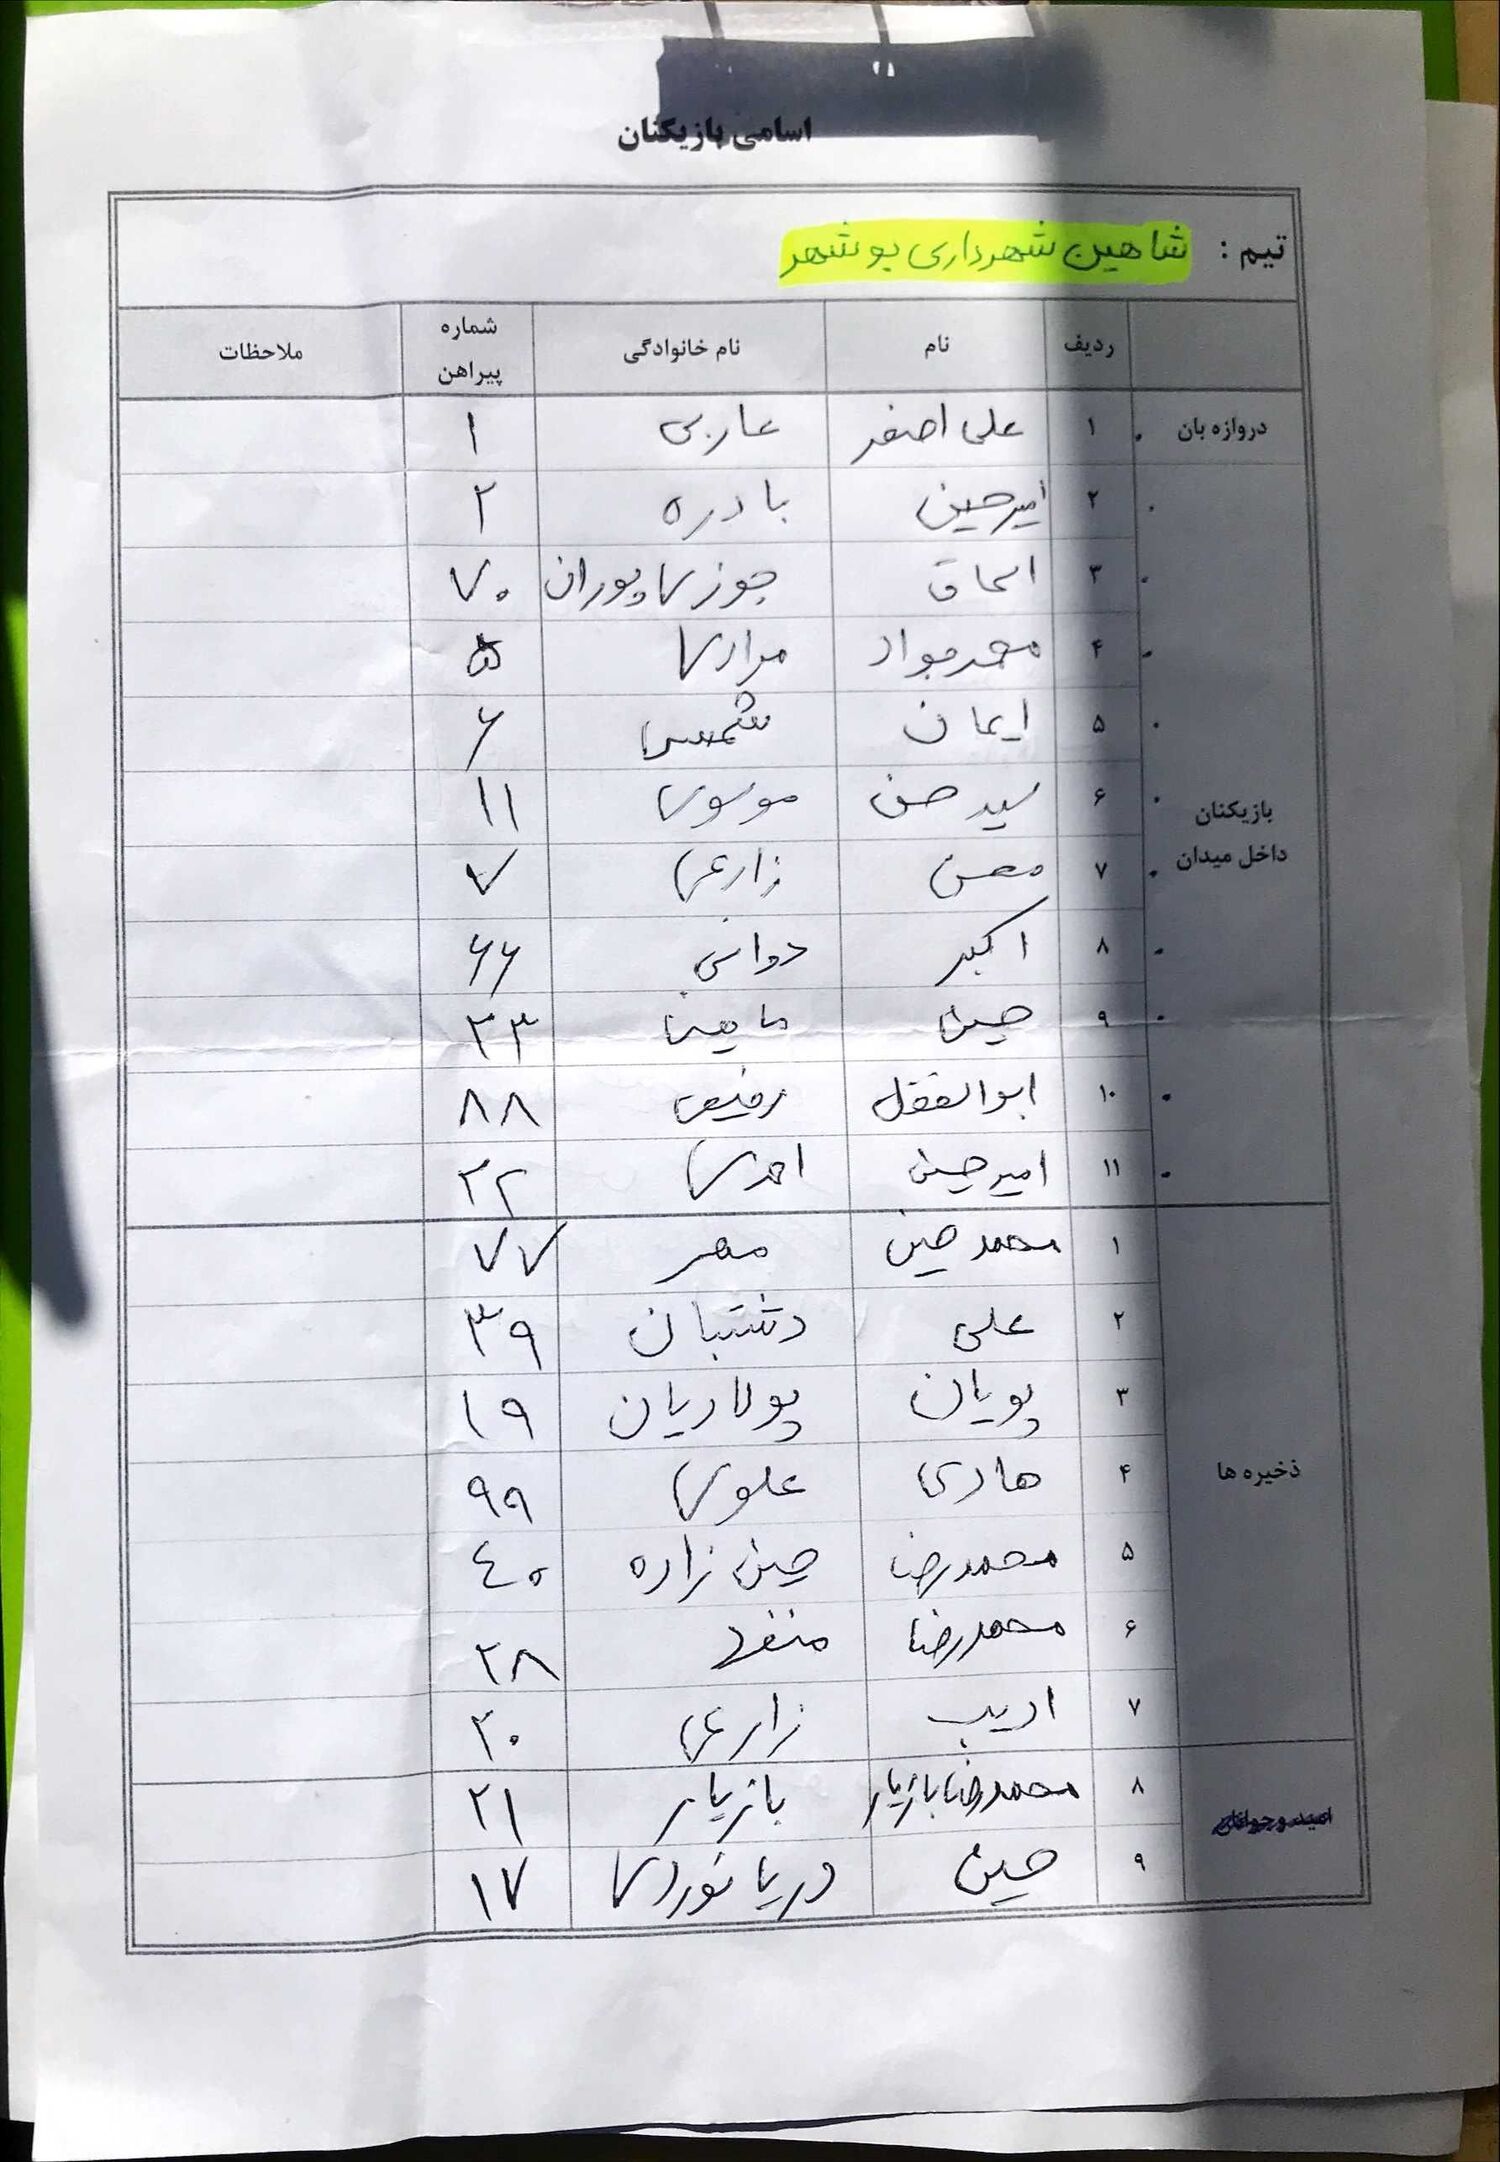 اسامی بازیکنان
تیم : شاهین شهرداری بوشهر
ردیف نام نام خانوادگی شماره پیراهن ملاحظات
دروازه بان ۱ علی اصغر عاربی ۱
۲ امیرحسین بادره ۲
۳ اسحاق جوزی پوران ۷۰
۴ محمدجواد مرادی ۵
۵ ایمان شمسی ۶
۶ سید حسن موسوی ۱۱
بازیکنان داخل میدان
۷ محسن زارعی ۷
۸ اکبر دوانی ۶۶
۹ حسین ۳۳
۱۰ ابوالفضل رفیعی ۸۸
۱۱ امیرحسین احمدی ۳۲
۱ محمدحسین مهر ۷۷
۲ علی دشتبان ۳۹
۳ پویان پولادیان ۱۹
ذخیره ها ۴ هادی علوی ۹۹
۵ محمدرضا حسین زاده ۴۰
۶ محمدرضا منفرد ۲۸
۷ ادیب زارعی ۲۰
۸ محمدرضا بازیار بازیار ۲۱
امید و جوانان
۹ حسین دریانوردی ۱۷